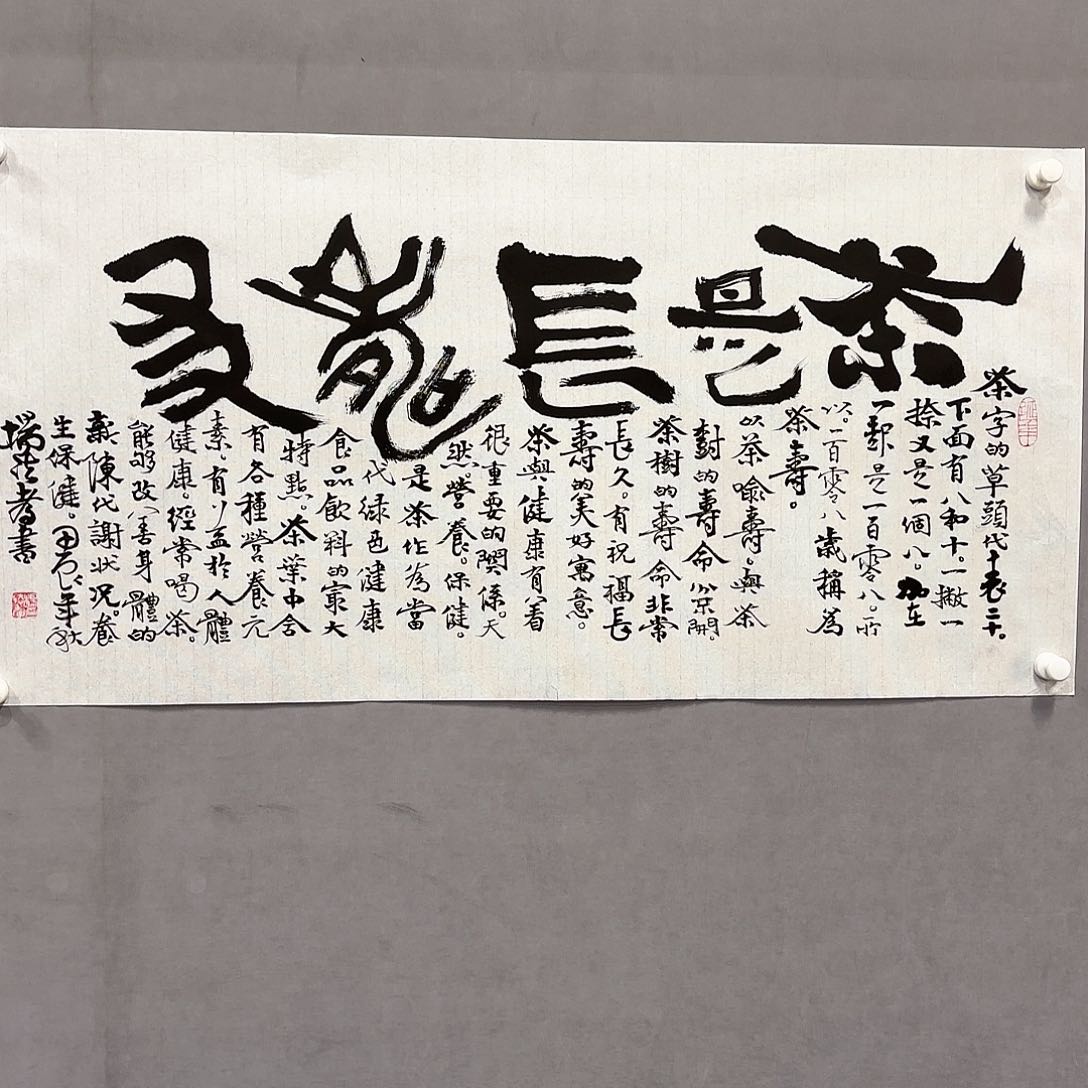 茶是長壽友
茶字的草頭代十表二十。
下面有八和十。一撇一
捺又是一個八。加在
一起是一百零八。所
以一百零八歲稱為
茶壽。
以茶喻壽。與茶
對的壽命
茶樹的壽命非常
長久。有祝福長
壽的美好寓意。
茶與健康有着
很重要的關係。天
然營養。保健。
是茶作為當
代綠色健康
食品飲料的最大
特點。茶葉中含
有各種營養元
素。有益於人體
健康。經常喝茶。
能夠改善身體的
新陳代謝狀況。養
生保健。
書